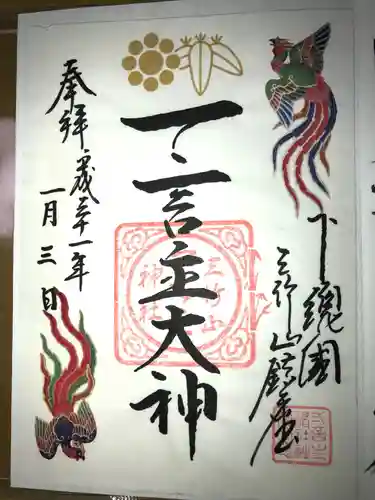 下総国
三竹山鎮座
一言主大神
奉拝 平成三十一年
一月三日
三竹山
神社